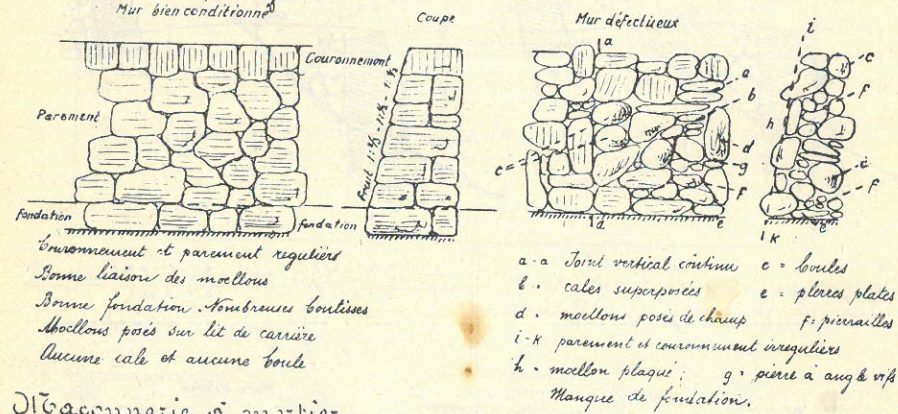 Mur bien conditionné
Coupe
Mur défectueux
Couronnement
Parement
Fruit 1:⅓ - 1:¼ - 1:⅕
fondation
fondation
i
a
c
a
b
d
g
F
e
c
d
h
F
e
F
e
i k
Couronnement et parement reguliers
Bonne liaison des moellons
Bonne fondation. Nombreuses boutisses
Moellons posés sur lit de carrière
Aucune cale et aucune boule
a-a Joint vertical continu c = boules
b = cales superposées e = pierres plates
d = moellons posés de champ F = pierrailles
i-k parement et couronnement irreguliers
h = moellon plaqué; g = pierre à angle vifs
Manque de fondation.
Maçonnerie à mortier